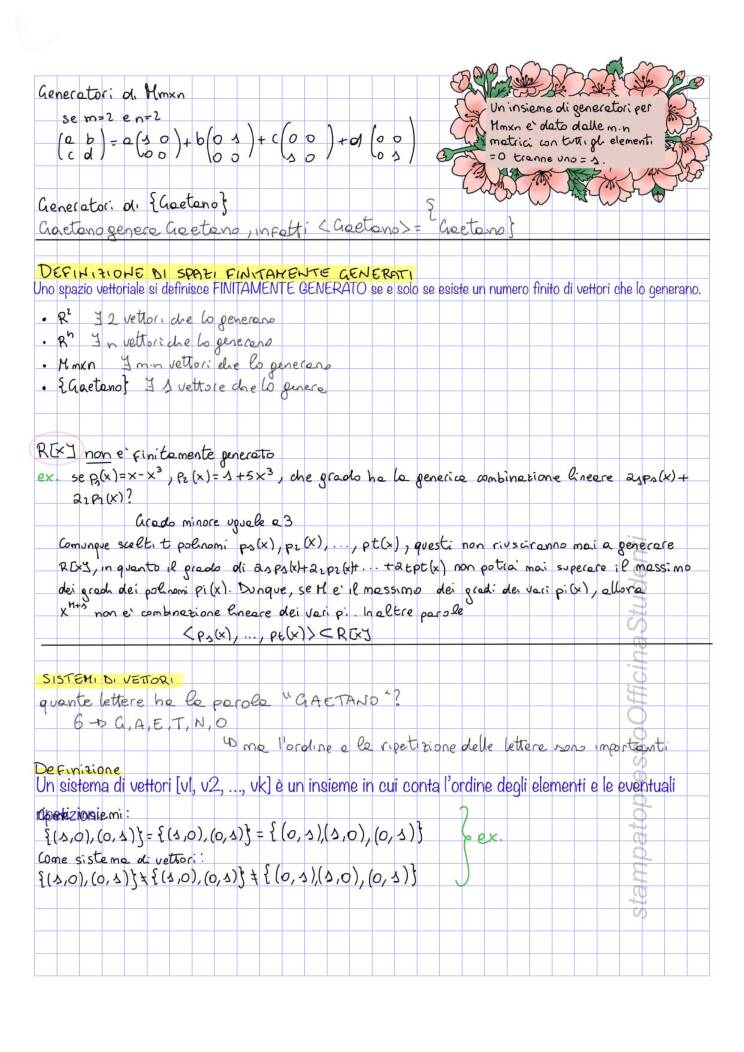 Generatori di Mmxn
se m=2 e n=2
(a b
c d) = a(1 0
0 0) + b(0 1
0 0) + c(0 0
1 0) + d(0 0
0 1)
Un'insieme di generatori per
Mmxn e' dato dalle m.n
matrici con tutti gli elementi
=0 tranne uno = 1.
Generatori di {Gaetano}
Gaetano genera Gaetano, infatti <Gaetano> = {Gaetano}
DEFINIZIONE DI SPAZI FINITAMENTE GENERATI
Uno spazio vettoriale si definisce FINITAMENTE GENERATO se e solo se esiste un numero finito di vettori che lo generano.
• R² ∃ 2 vettori che lo generano
• Rⁿ ∃ n vettori che lo generano
• Mmxn ∃ m.n vettori che lo generano
• {Gaetano} ∃ 1 vettore che lo genera
R[x] non e' finitamente generato
ex. se p₁(x)=x-x³, p₂(x)=1+5x³, che grado ha la generica combinazione lineare a₁p₁(x)+
a₂p₂(x)?
Grado minore uguale a 3
Comunque scelti t polinomi p₁(x), p₂(x), ..., pt(x), questi non riusciranno mai a generare
R[x], in quanto il grado di a₁p₁(x)+a₂p₂(x)+...+atpt(x) non potrà mai superare il massimo
dei gradi dei polinomi pi(x). Dunque, se M è il massimo dei gradi dei vari pi(x), allora
x^M+1 non e' combinazione lineare dei vari pi. In altre parole
<p₁(x), ..., pt(x)> ⊂ R[x]
SISTEMI DI VETTORI
quante lettere ha la parola "GAETANO"?
6 → G, A, E, T, N, O
↳ ma l'ordine e la ripetizione delle lettere sono importanti
Definizione
Un sistema di vettori [v1, v2, ..., vk] è un insieme in cui conta l'ordine degli elementi e le eventuali
ripetizioni
Come insiemi:
{(1,0),(0,1)} = {(1,0),(0,1)} = {(0,1)(1,0),(0,1)}
ex.
Come sistema di vettori:
{(1,0),(0,1)} ≠ {(1,0),(0,1)} ≠ {(0,1)(1,0),(0,1)}
stampatopressoOfficinaStudenti